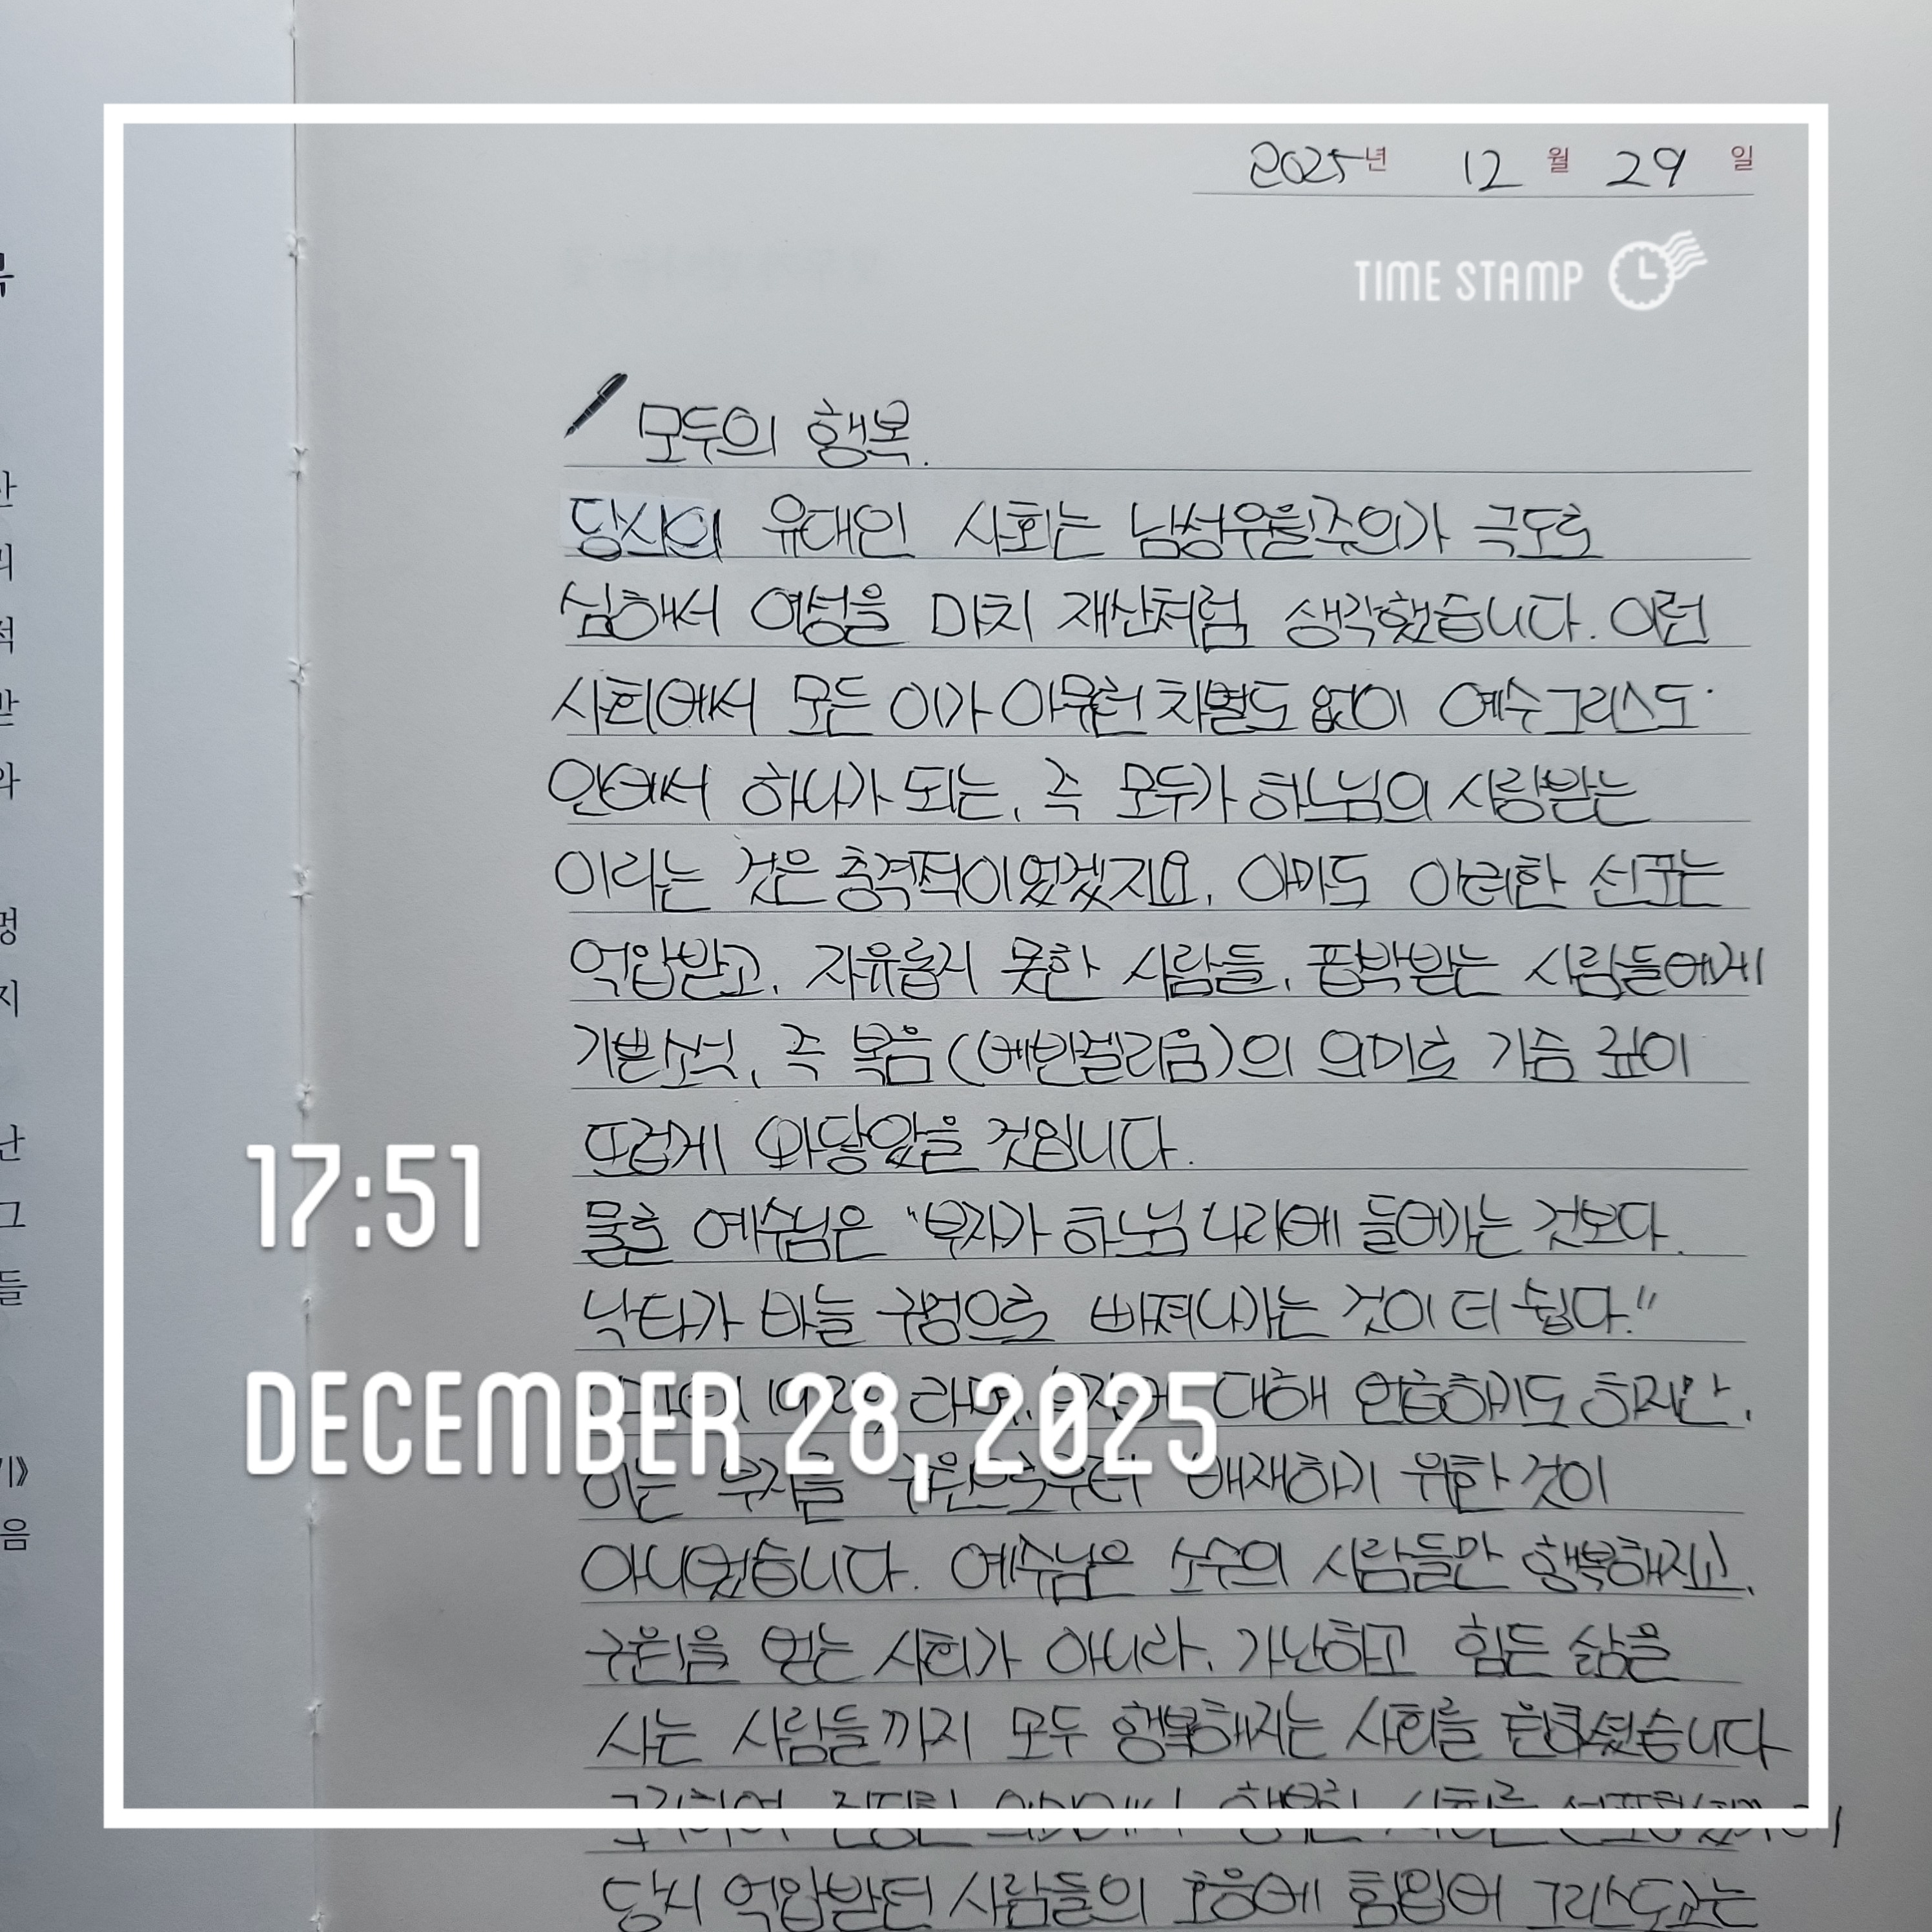 2025년 12월 29일
TIME STAMP
모두의 행복.
당시의 유대인 사회는 남성우월주의가 극도로
심해서 여성을 마치 재산처럼 생각했습니다. 이런
사회에서 모든 이가 아무런 차별도 없이 예수그리스도
안에서 하나가 되는, 즉 모두가 하느님의 사랑받는
이라는 것은 충격적이었겠지요. 아마도 이러한 선포는
억압받고, 자유롭지 못한 사람들, 핍박받는 사람들에게
기쁜소식, 즉 복음(에반겔리움)의 의미로 가슴 깊이
뜨겁게 와닿았을 것입니다.
물론 예수님은 "부자가 하느님 나라에 들어가는 것보다
낙타가 바늘 구멍으로 빠져나가는 것이 더 쉽다."
대해 언급하기도 하지만,
이는 부자를 구원으로부터 배재하기 위한 것이
아니었습니다. 예수님은 소수의 사람들만 행복해지고,
구원을 얻는 사회가 아니라, 가난하고 힘든 삶을
사는 사람들까지 모두 행복해지는 사회를 원하셨습니다
당시 억압받던 사람들의 호응에 힘입어 그리스도교는
17:51
DECEMBER 28, 2025